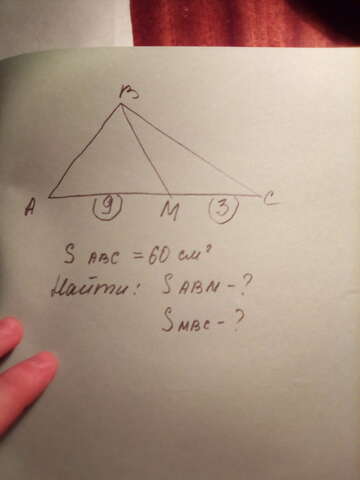 B
A 9 M 3 C
S ABC = 60 см²
Найти: S ABM - ?
S MBC - ?